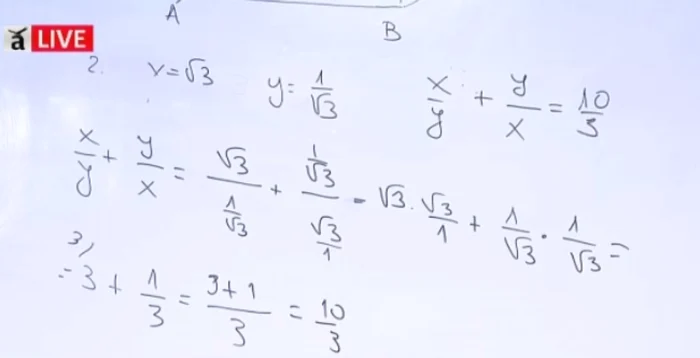 A
B
ă LIVE
2. x=√3 y=1/√3 x/y + y/x = 10/3
x/y + y/x = √3/(1/√3) + (1/√3)/(√3/1) = √3·√3/1 + 1/√3 · 1/√3 =
3)
= 3 + 1/3 = 3+1/3 = 10/3